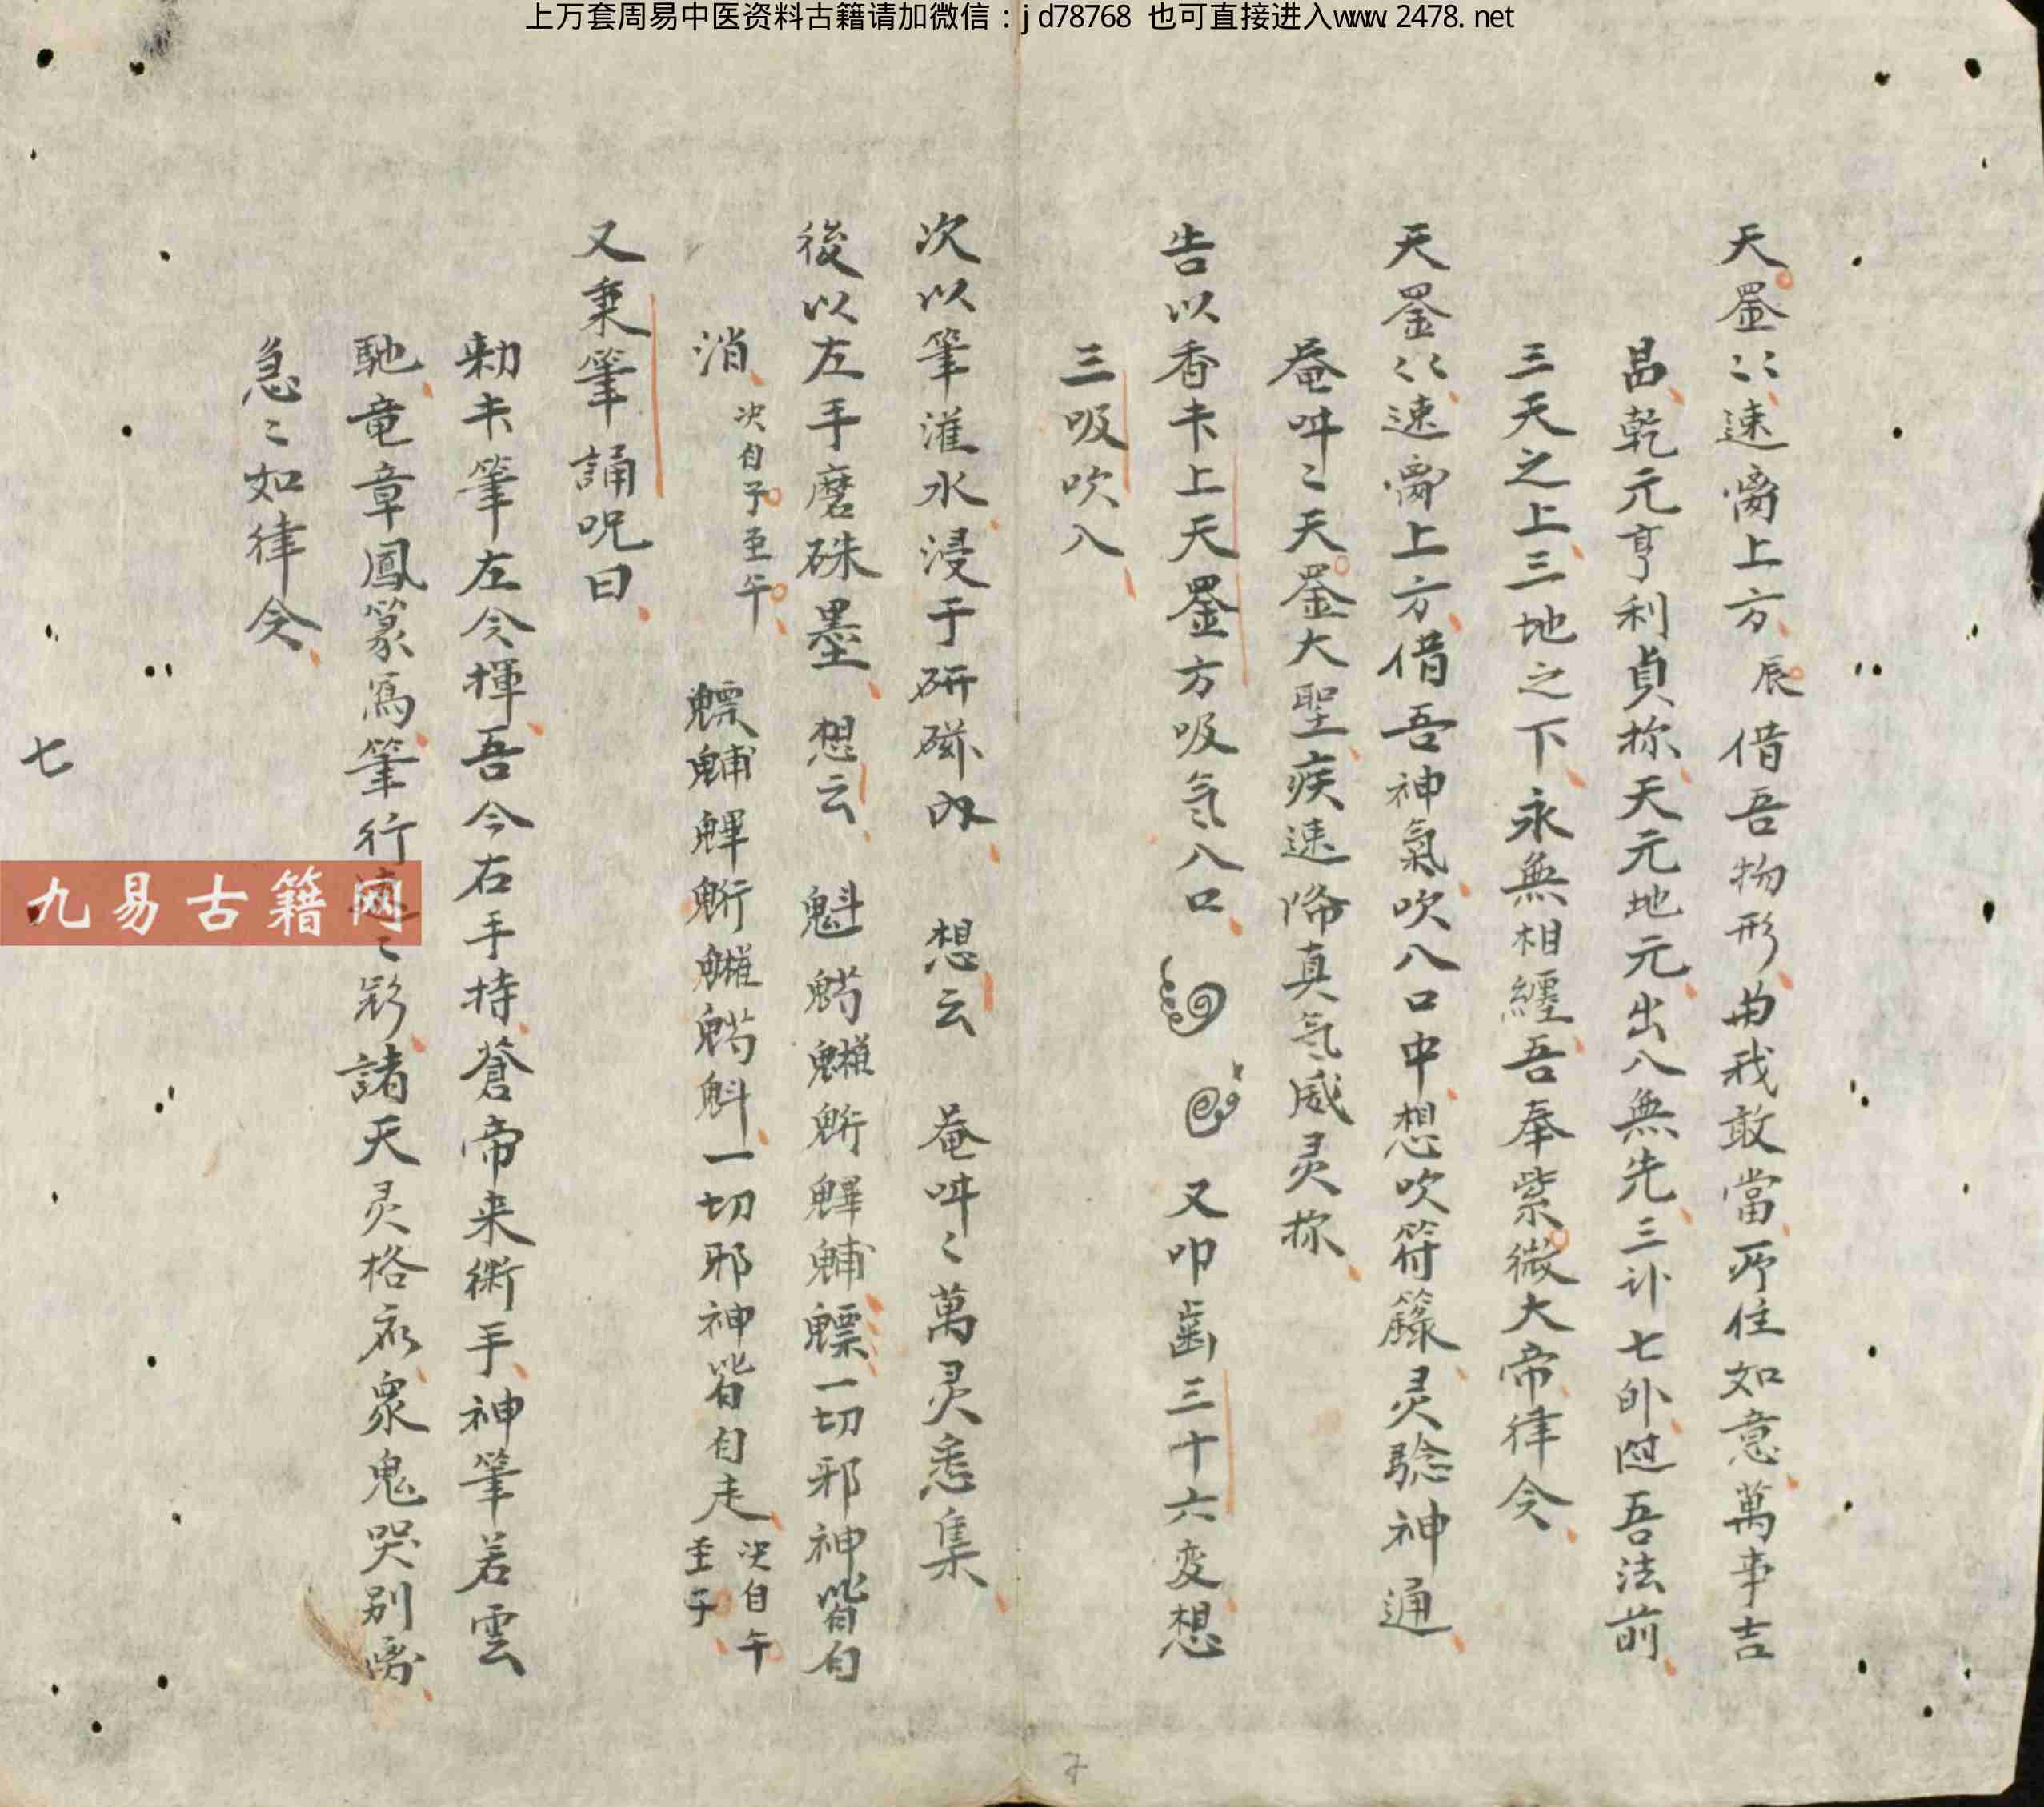 上万套周易中医资料古籍请加微信：jd78768 也可直接进入www.2478.net
天罡〻速離上方辰借吾物形由我敢當所住如意萬事吉
昌乾元亨利貞称天元地元出八無先三卟七卧愆吾法前
三天之上三地之下永無相纏吾奉紫微大帝律令
天罡〻速離上方借吾神氣吹八口中想吹符籙灵驗神通
奄吽〻天罡大聖疾速降真气威灵称
告以香卡上天罡方吸气八口 又叩齒三十六変想
三吸吹入
次以筆灌水浸于研磁内 想云 奄吽〻萬灵悉集
後以左手磨硃墨 想云 魁䰢䰣魓魒一切邪神皆自
消 次自子至午 魒魓䰢魁一切邪神皆自走 次自午至子
又秉筆誦呪曰
勅卡筆左令揮吾今右手持蒼帝来衛手神筆若雲
馳竜章鳳篆寫筆行〻諸天灵格衣衆鬼哭别离
急〻如律令
七
九易古籍网